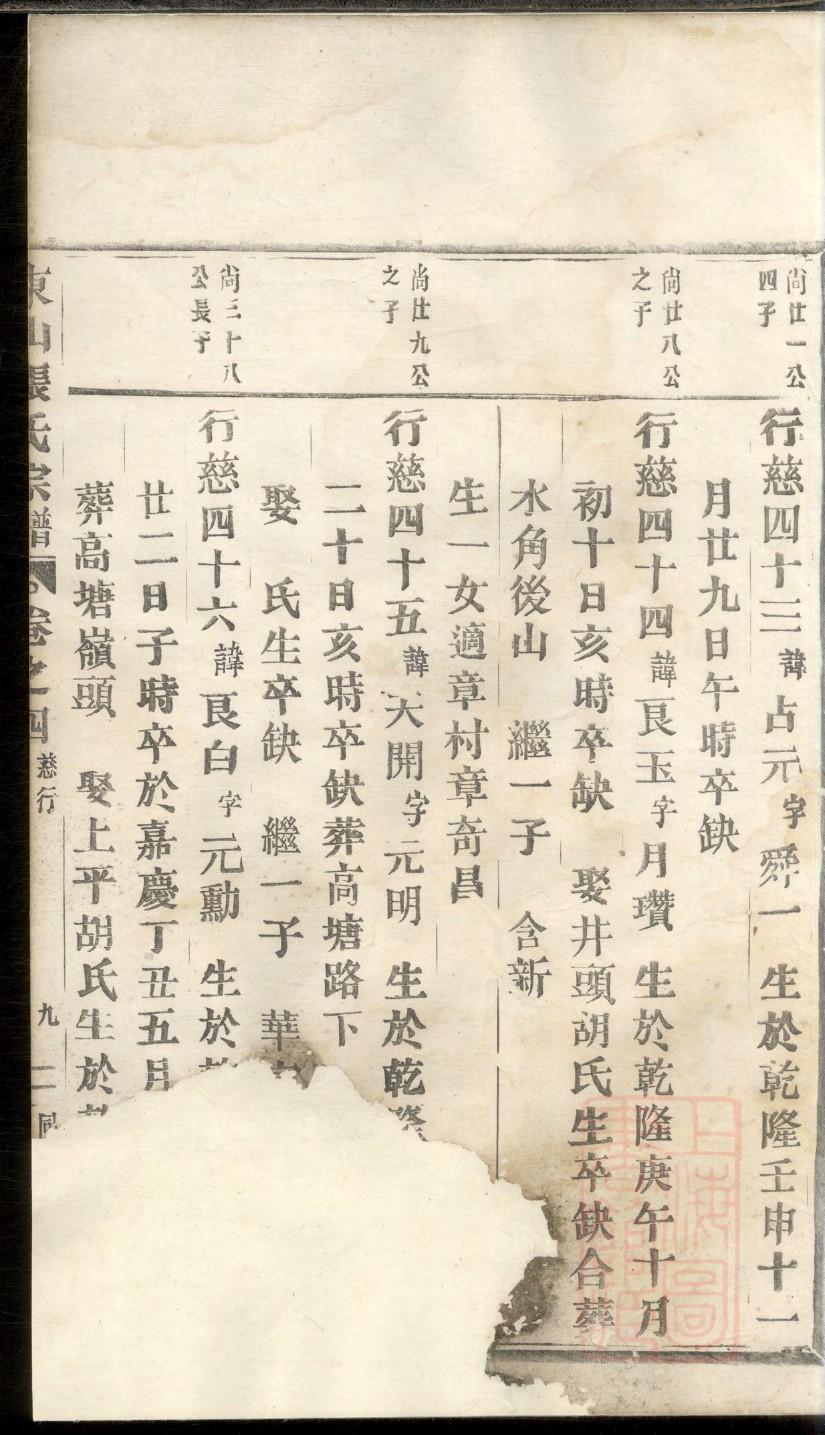 尙廿一公
四子
行慈四十三諱占元字舜一 生於乾隆壬申十一
月廿九日午時卒缺
尙廿八公
之子
行慈四十四諱良玉字月瓚 生於乾隆庚午十月
初十日亥時卒缺 娶井頭胡氏生卒缺合葬
水角後山 繼一子 含新
生一女適章村章奇昌
尙廿九公
之子
行慈四十五諱天開字元明 生於乾隆
二十日亥時卒缺葬高塘路下
娶 氏生卒缺 繼一子 華
尙三十八
公長子
行慈四十六諱良白字元勳 生於
廿二日子時卒於嘉慶丁丑五月
葬高塘嶺頭 娶上平胡氏生於
東山張氏宗譜 卷之四 慈行 九 二